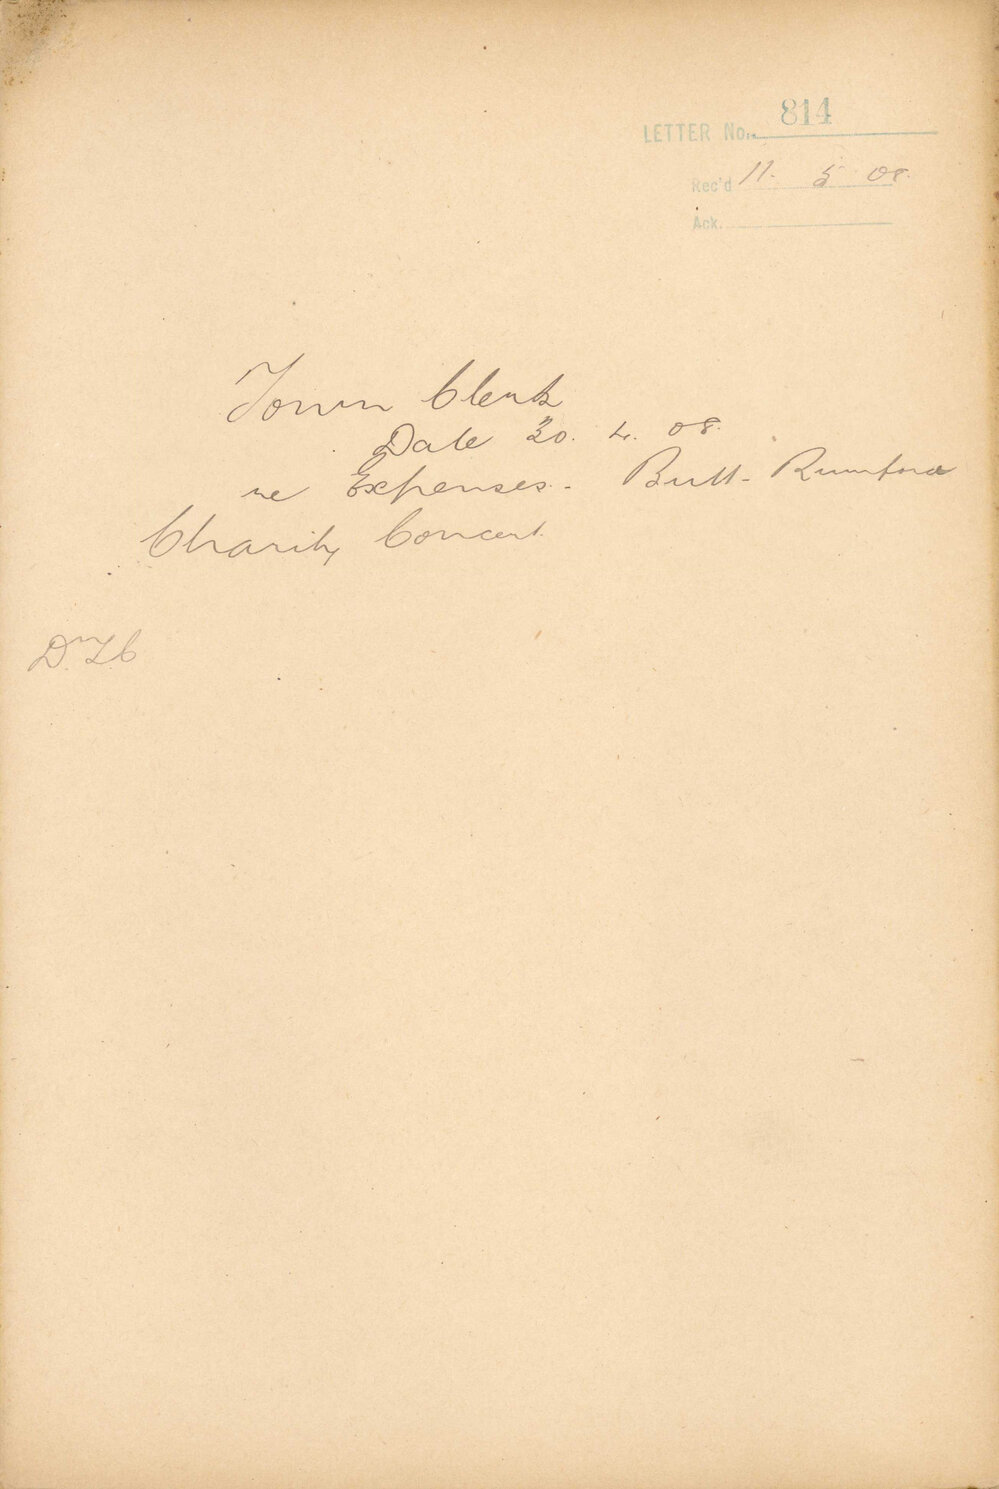 LETTER No. 814
Rec'd 11. 5 08.
Ack.
Town Clerk
Date 30. 4. 08.
re Expenses. Butt-Rumford
Charity Concert.